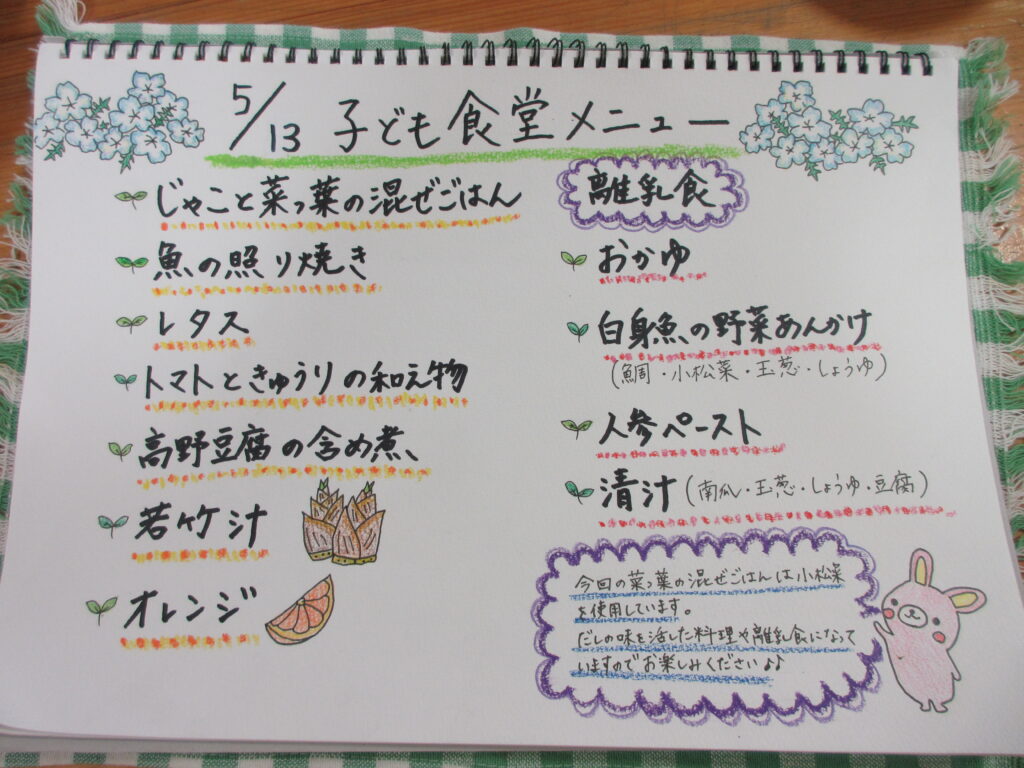 5/13 子ども食堂メニュー
じゃこと菜っ葉の混ぜごはん
魚の照り焼き
レタス
トマトときゅうりの和え物
高野豆腐の含め煮
若竹汁
オレンジ
離乳食
おかゆ
白身魚の野菜あんかけ
(鯛・小松菜・玉葱・しょうゆ)
人参ペースト
清汁(南瓜・玉葱・しょうゆ・豆腐)
今回の菜っ葉の混ぜごはんは小松菜
を使用しています。
だしの味を活した料理や離乳食になって
いますのでお楽しみください♪♪